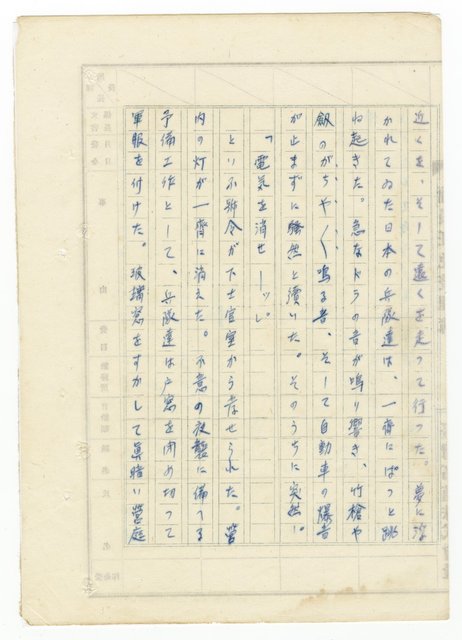 近くを、そして遠くを走って行った。夢に浮
かれてゐた日本の兵隊達は、一斉にぱっと跳
ね起きた。急なドラの音が鳴り響き、竹槍や
劔のがちや／＼鳴る音、そして自動車の爆音
が止まずに騒然と續いた。そのうちに突然！
「電気を消せーッ」
といふ號令が下士官室から発せられた。営
内の灯が一齊に消えた。不意の夜襲に備へる
予備工作として、兵隊達は戸窓を閉め切って
軍服を付けた。玻璃窓をすかして真暗い営庭